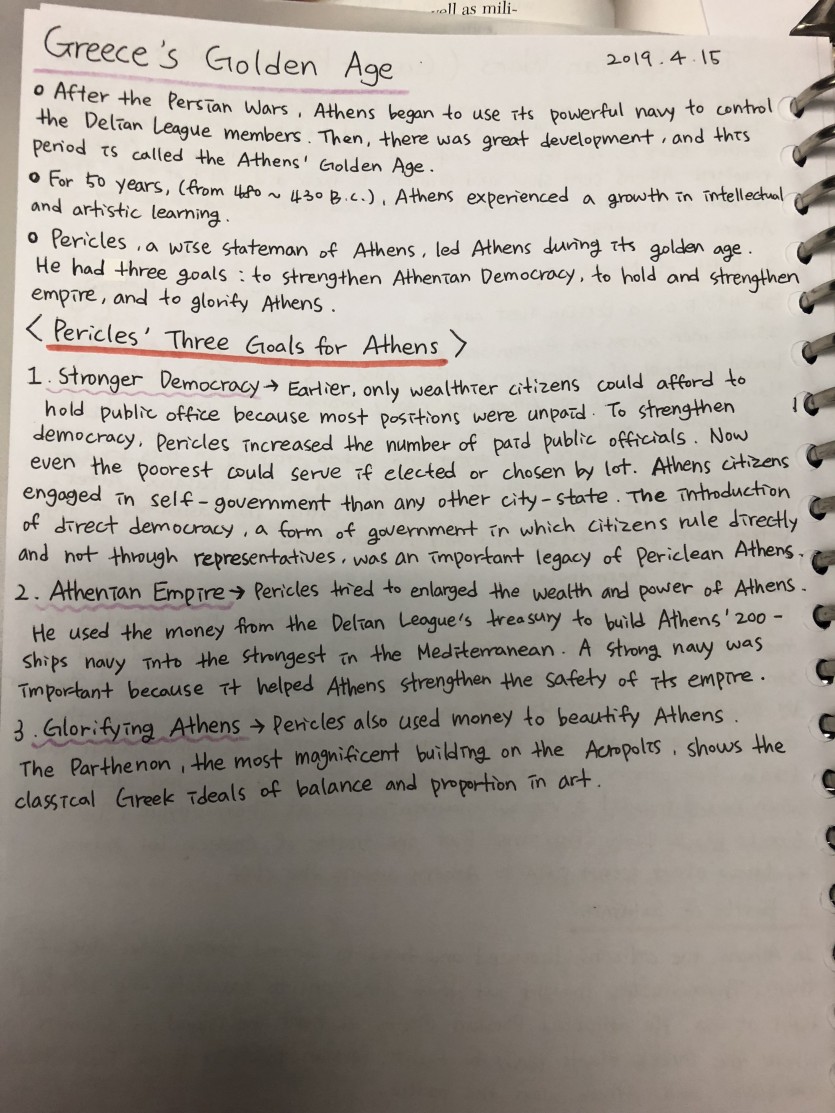 ...ell as mili-
Greece's Golden Age
2019.4.15
o After the Persian Wars, Athens began to use its powerful navy to control
the Delian League members. Then, there was great development, and this
period is called the Athens' Golden Age.
o For 50 years, (from 480 ~ 430 B.C.), Athens experienced a growth in intellectual
and artistic learning.
o Pericles, a wise stateman of Athens, led Athens during its golden age.
He had three goals : to strengthen Athenian Democracy, to hold and strengthen
empire, and to glorify Athens.
< Pericles' Three Goals for Athens >
1. Stronger Democracy → Earlier, only wealthier citizens could afford to
hold public office because most positions were unpaid. To strengthen
democracy, Pericles increased the number of paid public officials. Now
even the poorest could serve if elected or chosen by lot. Athens citizens
engaged in self-government than any other city-state. The introduction
of direct democracy, a form of government in which citizens rule directly
and not through representatives, was an important legacy of Periclean Athens.
2. Athenian Empire → Pericles tried to enlarged the wealth and power of Athens.
He used the money from the Delian League's treasury to build Athens' 200-
ships navy into the strongest in the Mediterranean. A strong navy was
important because it helped Athens strengthen the safety of its empire.
3. Glorifying Athens → Pericles also used money to beautify Athens.
The Parthenon, the most magnificent building on the Acropolis, shows the
classical Greek ideals of balance and proportion in art.